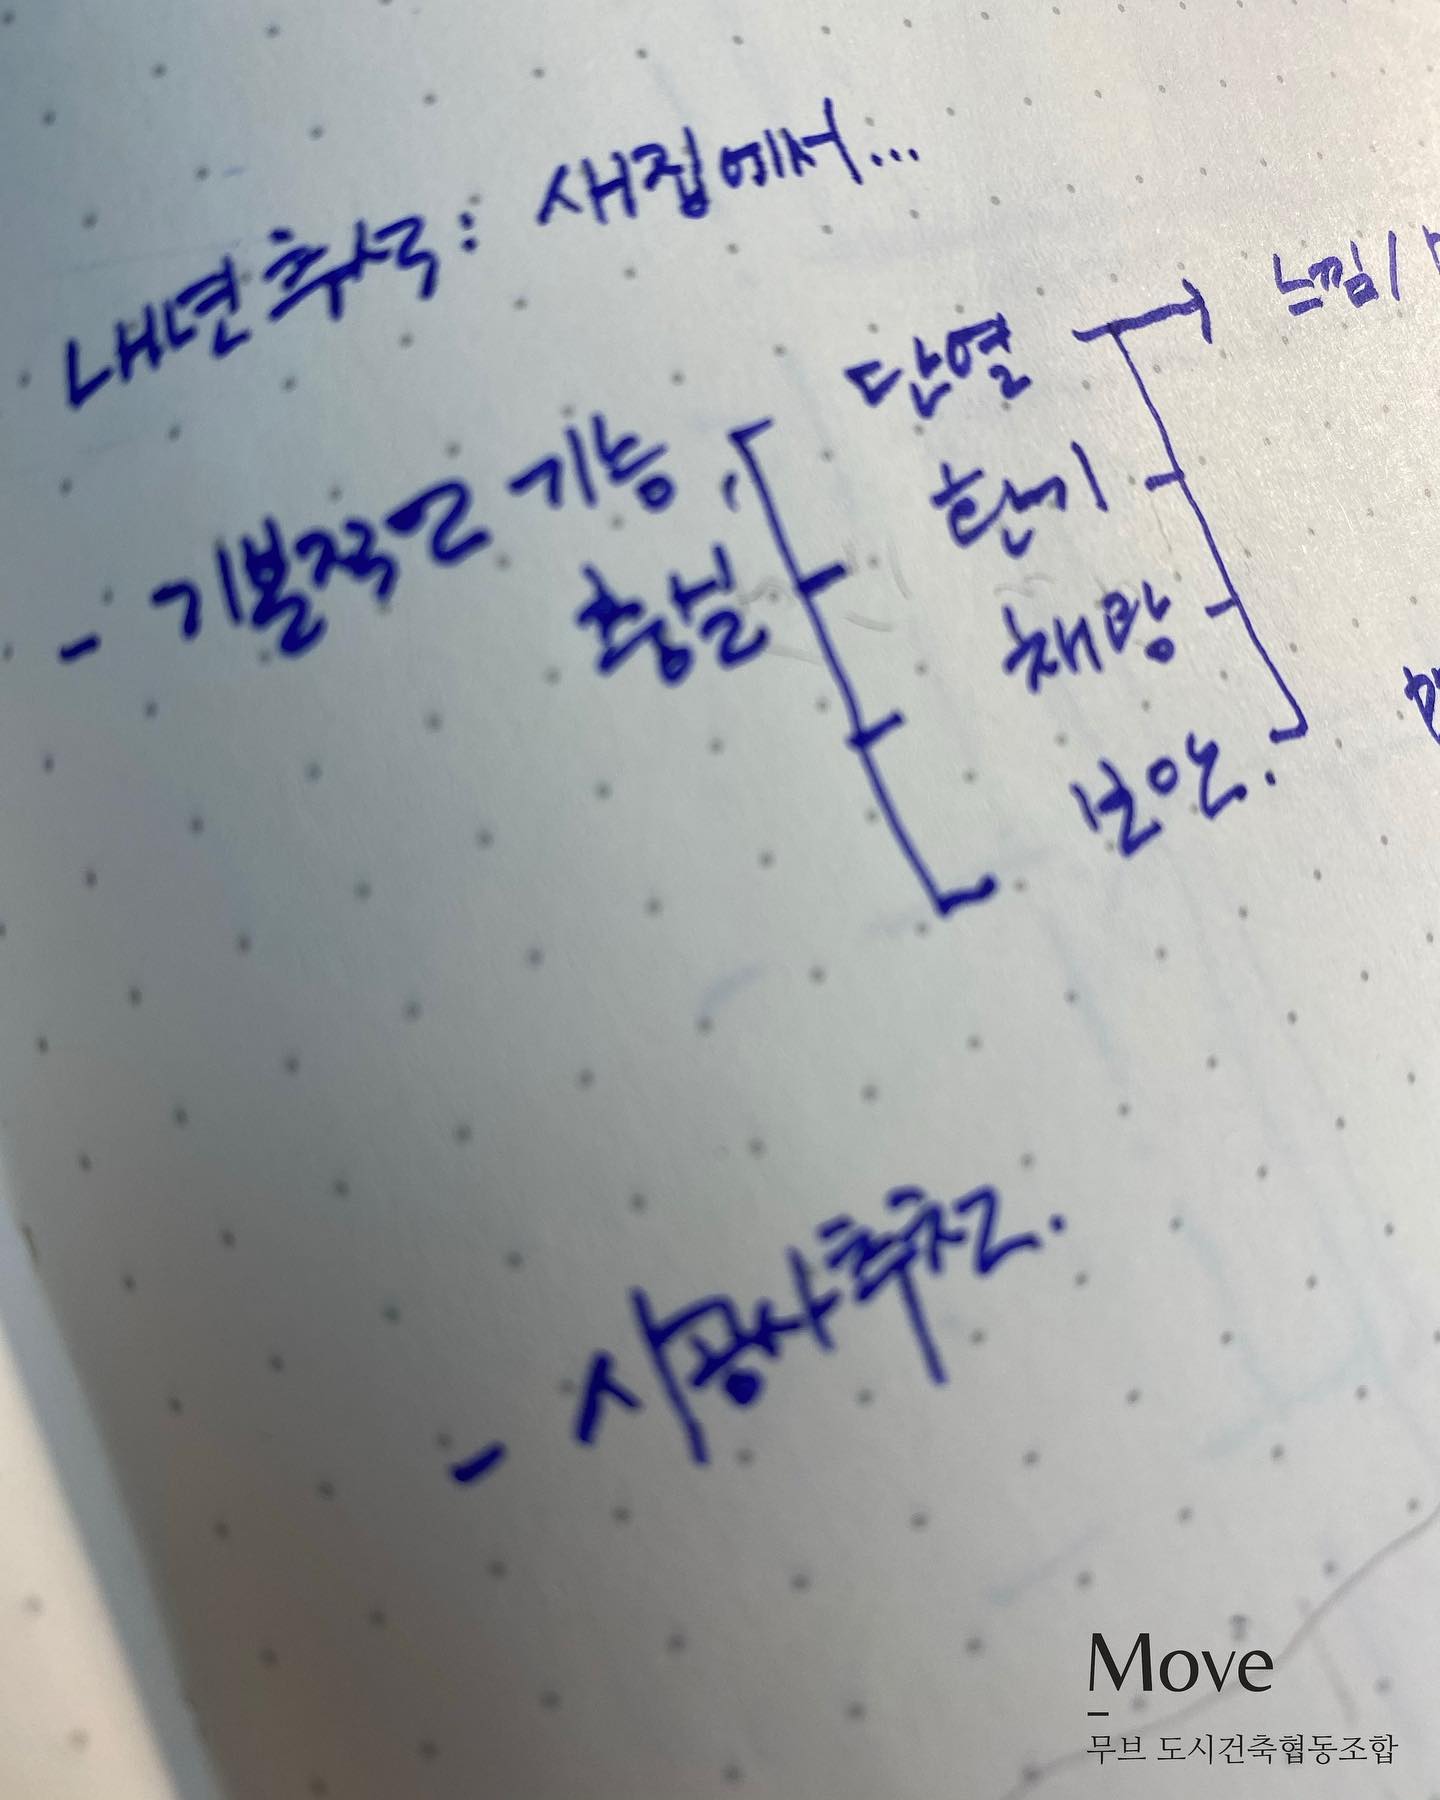 내년 추석: 새집에서...
- 기본적인 기능 충실
단열 → 느낌/
환기
채광
보안.
- 시공사 추천.
Move
무브 도시건축협동조합